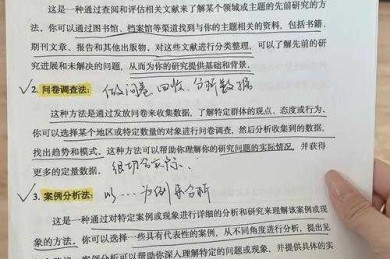 这是一种通过查阅和评估相关文献来了解某个领域或主题的先前研究的方
法。你可以通过图书馆、档案馆等渠道找到与你的主题相关的资料，包括书籍、
期刊文章、报告和其他出版物。对这些文献进行分类整理，可以了解先前的研
究进展和未解决的问题，从而为你的研究提供基础和背景。
✓2. 问卷调查法： 做问卷 回收、分析数据
这种方法是通过发放问卷来收集数据，了解特定群体的观点、态度或行为。
你可以选择某个地区或特定数量的对象进行问卷调查，然后分析收集到的数据，
找出趋势和模式。这种方法可以帮助你理解你的研究问题的实际情况，并获得
更多的定量数据。 很切合实际、
✓3. 案例分析法： 以……为例来分析
这是一种通过对特定案例或现象进行详细的分析和研究来理解该案例或现
象的方法。你可以选择一些具有代表性的案例，从不同角度进行分析，提出见
可以帮助你深入理解特定的问题或现象，并提供具体的实